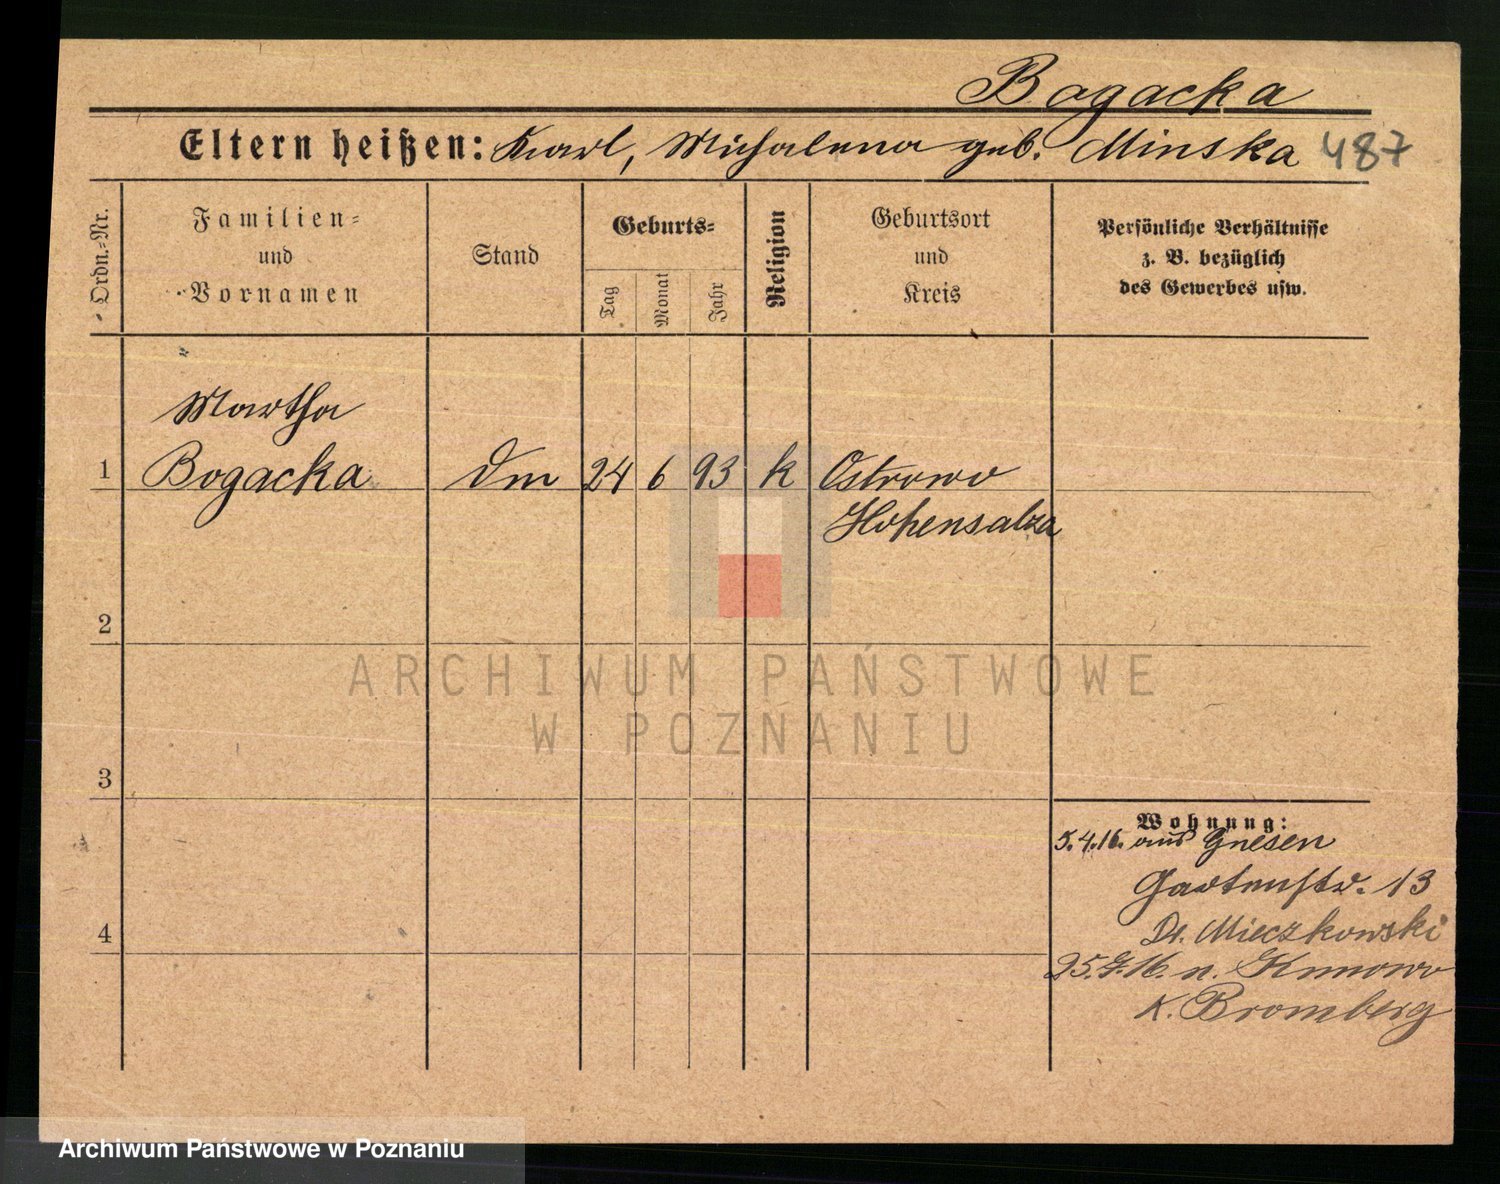 Bogacka
Eltern heißen: Karl, Michalina geb. Minska 487
Ordn.-Nr.
Familien-
und
Vornamen
Stand
Geburts-
Tag
Monat
Jahr
Religion
Geburtsort
und
Kreis
Persönliche Verhältnisse
z. B. bezüglich
des Gewerbes usw.
Martha
1 Bogacka 24 6 93 k Ostrowo
Hohensalza
2
3
4
ARCHIWUM PAŃSTWOWE
W POZNANIU
Wohnung:
5.4.16. aus Gnesen
Gartenstr. 13
Mieczkowski
n.
K. Bromberg
Archiwum Państwowe w Poznaniu